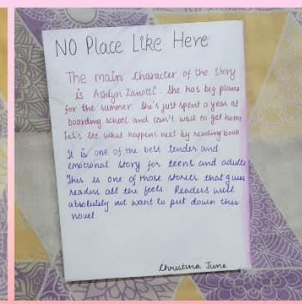 NO Place Like Here
The main Character of the Story
is Ashlyn Zanotti. She has big plans
for the summer She's just spent a year at
boarding school and can't wait to get home
Let's see what happens next by reading book
It is one of the best tender and
emotional story for teens and adults
This is one of those stories that gives
readers all the feels Readers will
absolutely not want to put down this
novel
Christina June